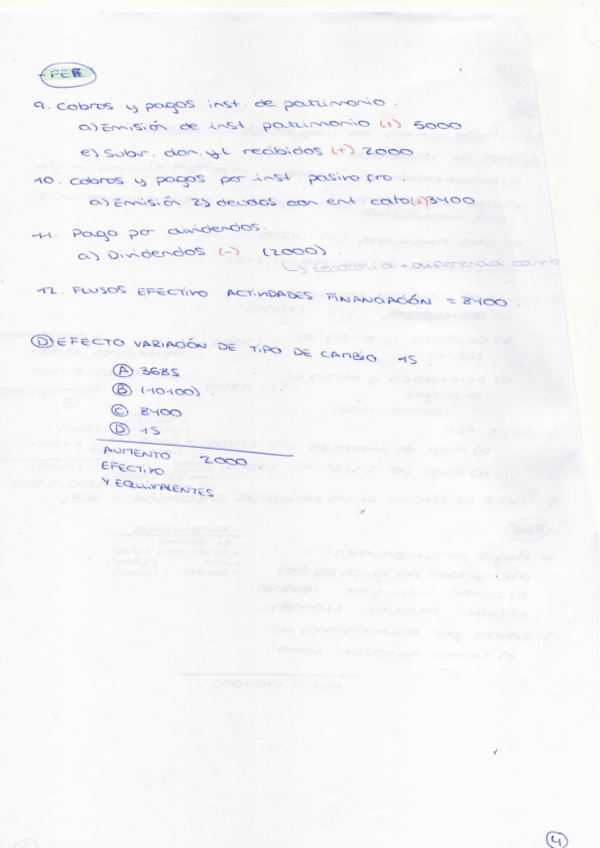 - FEF
9. Cobros y pagos inst. de patrimonio.
a) Emisión de inst. patrimonio (+) 5000
e) Subv. don. y l recibidos (+) 2000
10. Cobros y pagos por inst. pasivo fro.
a) Emisión 2) deudas con ent. cdto (+) 3400
11. Pago por dividendos.
a) Dividendos (-) (2000).
+ diferencia camb
12. FLUJOS EFECTIVO ACTIVIDADES FINANCIACIÓN = 8400.
D) EFECTO VARIACIÓN DE TIPO DE CAMBIO 15.
A 3685
B (-10100)
C 8400
D 15
AUMENTO 2000
EFECTIVO
Y EQUIVALENTES
4